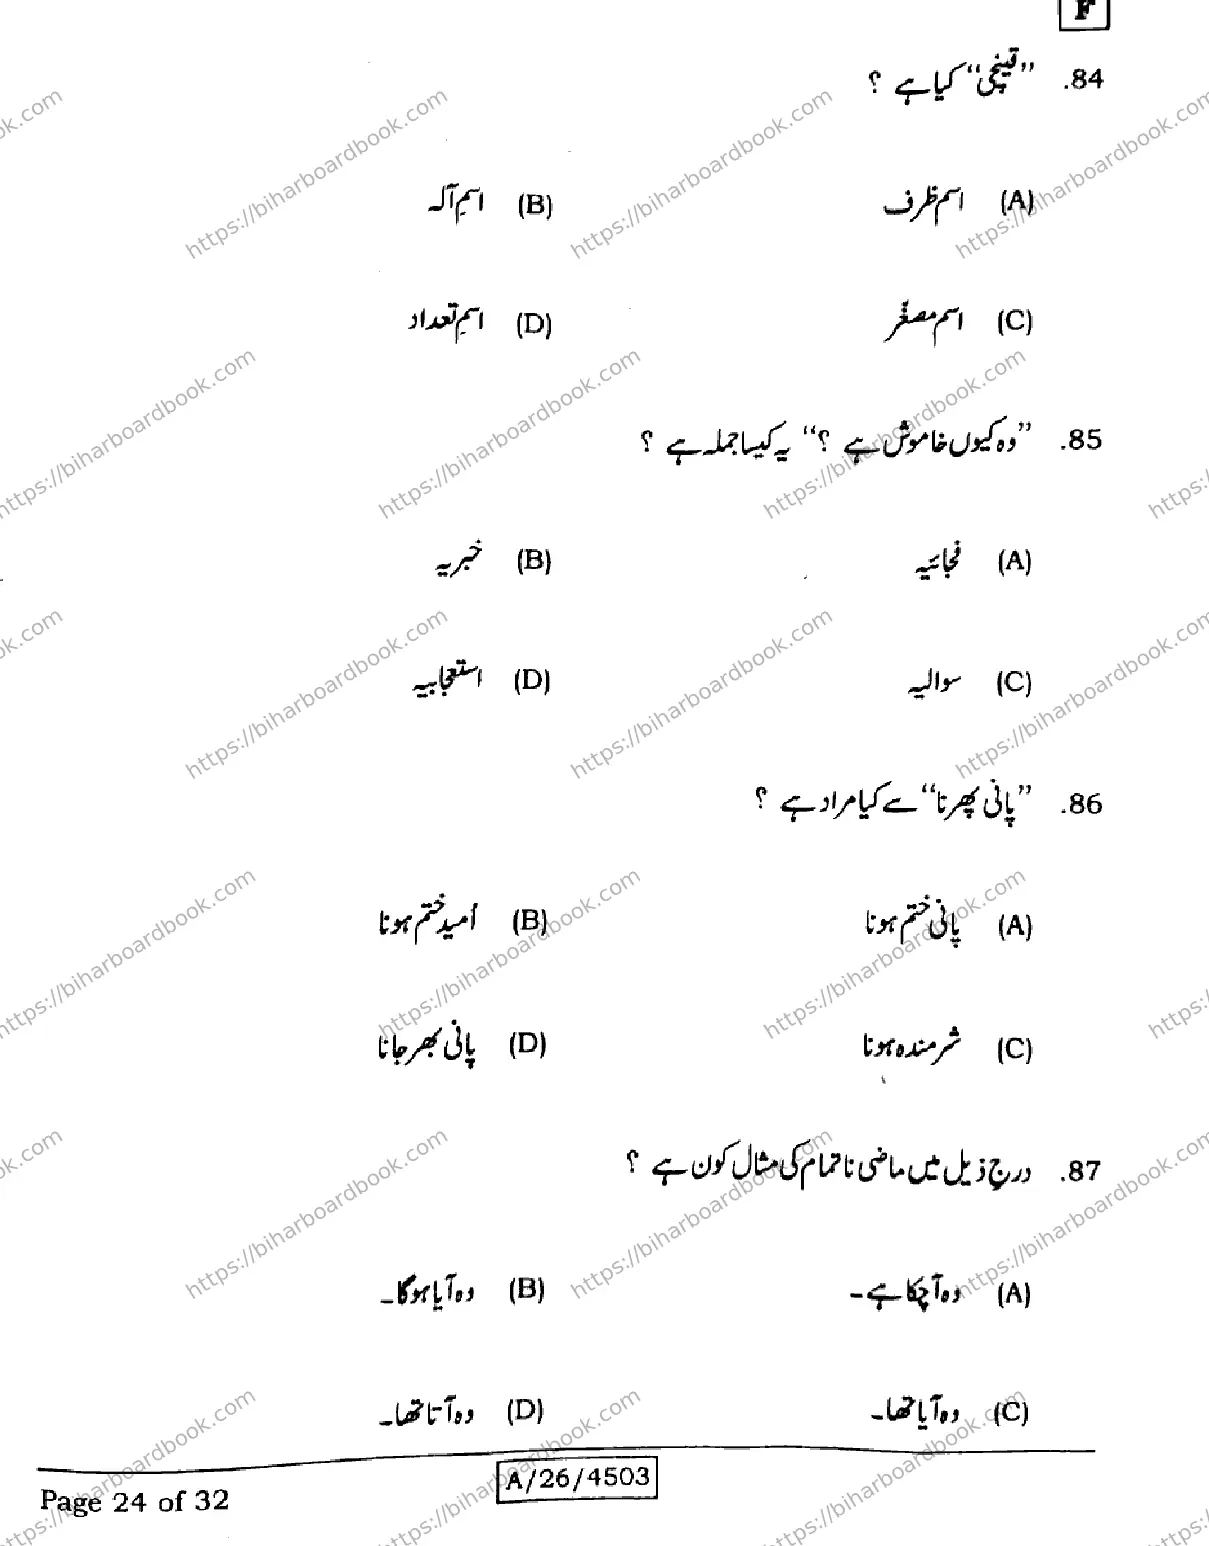 F
84. "قینچی" کیا ہے ؟
(A) اسم ظرف (B) اسم آلہ
(C) اسم مصغّر (D) اسم تعداد
85. "وہ کیوں خاموش ہے ؟" یہ کیسا جملہ ہے ؟
(A) فجائیہ (B) خبریہ
(C) سوالیہ (D) استعجابیہ
86. "پانی پھرنا" سے کیا مراد ہے ؟
(A) پانی ختم ہونا (B) اُمید ختم ہونا
(C) شرمندہ ہونا (D) پانی بھر جانا
87. درج ذیل میں ماضی ناتمام کی مثال کون ہے ؟
(A) وہ آ چکا ہے۔ (B) وہ آیا ہوگا۔
(C) وہ آیا تھا۔ (D) وہ آتا تھا۔
A/26/4503
Page 24 of 32
https://biharboardbook.com